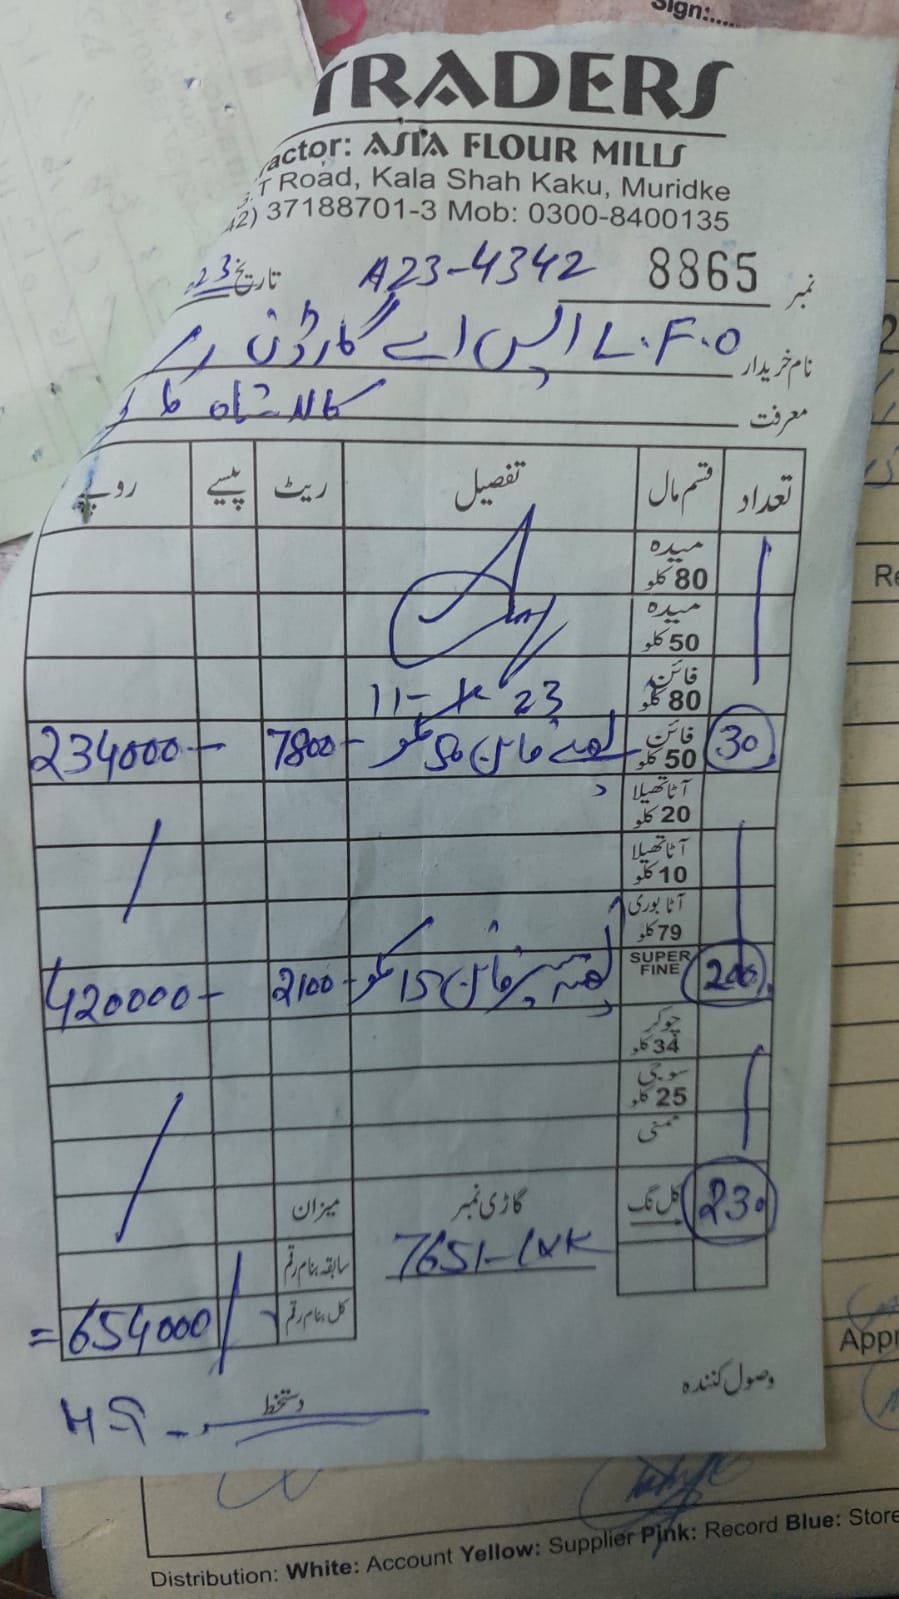 Sign:.....
TRADERS
actor: ASIA FLOUR MILLS
T Road, Kala Shah Kaku, Muridke
42) 37188701-3 Mob: 0300-8400135
نمبر 8865 A23-4342 تاریخ 23
نام خریدار L.F.O ایس اے گارڈن
معرفت کالا شاہ کا
تعداد قسم مال تفصیل ریٹ پیسے روپے
میدہ 80 کلو
میدہ 50 کلو
فائن 80 کلو
30 فائن 50 کلو فائن 50 کلو 7800- 234000-
آٹا تھیلا 20 کلو
آٹا تھیلا 10 کلو
آٹا بوری 79 کلو
200 SUPER FINE سپر فائن 15 کلو 2100- 420000-
چوکر 34 کلو
سوجی 25 کلو
ممنی
230 کل نگ گاڑی نمبر میزان
7651- سابقہ بنام رقم
کل بنام رقم =654000
وصول کنندہ
دستخط
Re
Appr
Distribution: White: Account Yellow: Supplier Pink: Record Blue: Store